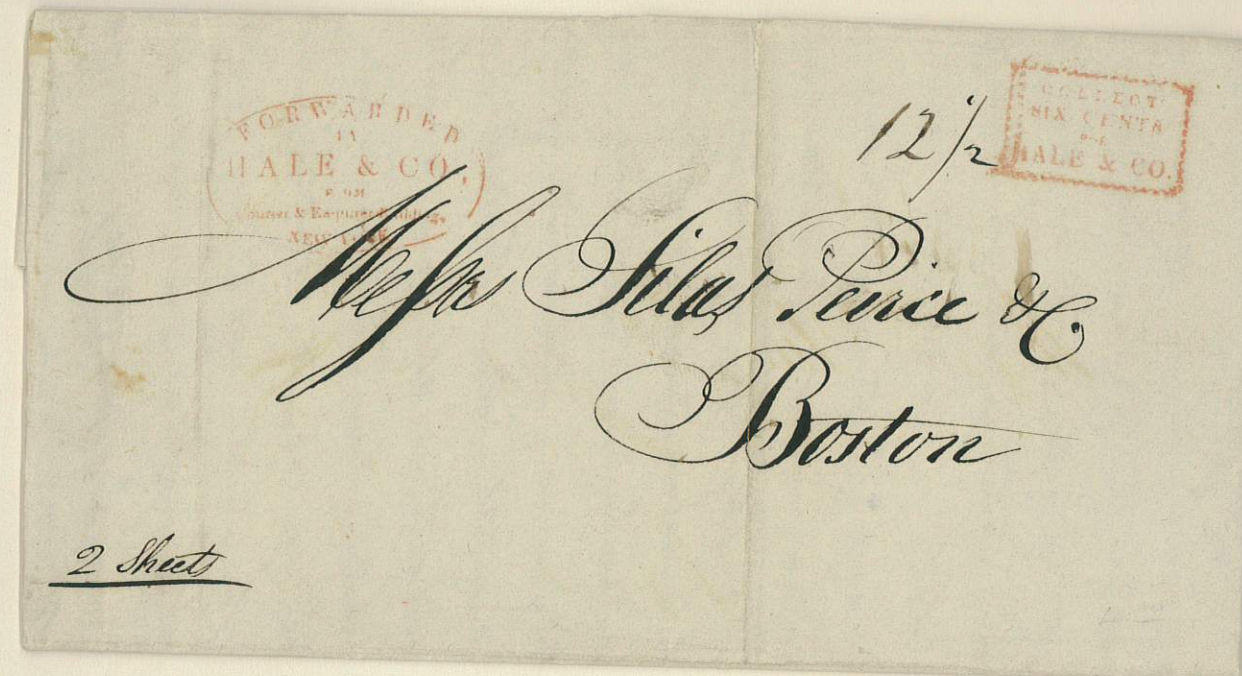 FORWARDED
BY
HALE & CO,
FROM
Courier & Enquirer Building,
NEW YORK
12 1/2
COLLECT
SIX CENTS
FOR
HALE & CO.
Messrs Silas Peirce & C.
Boston
2 Sheets